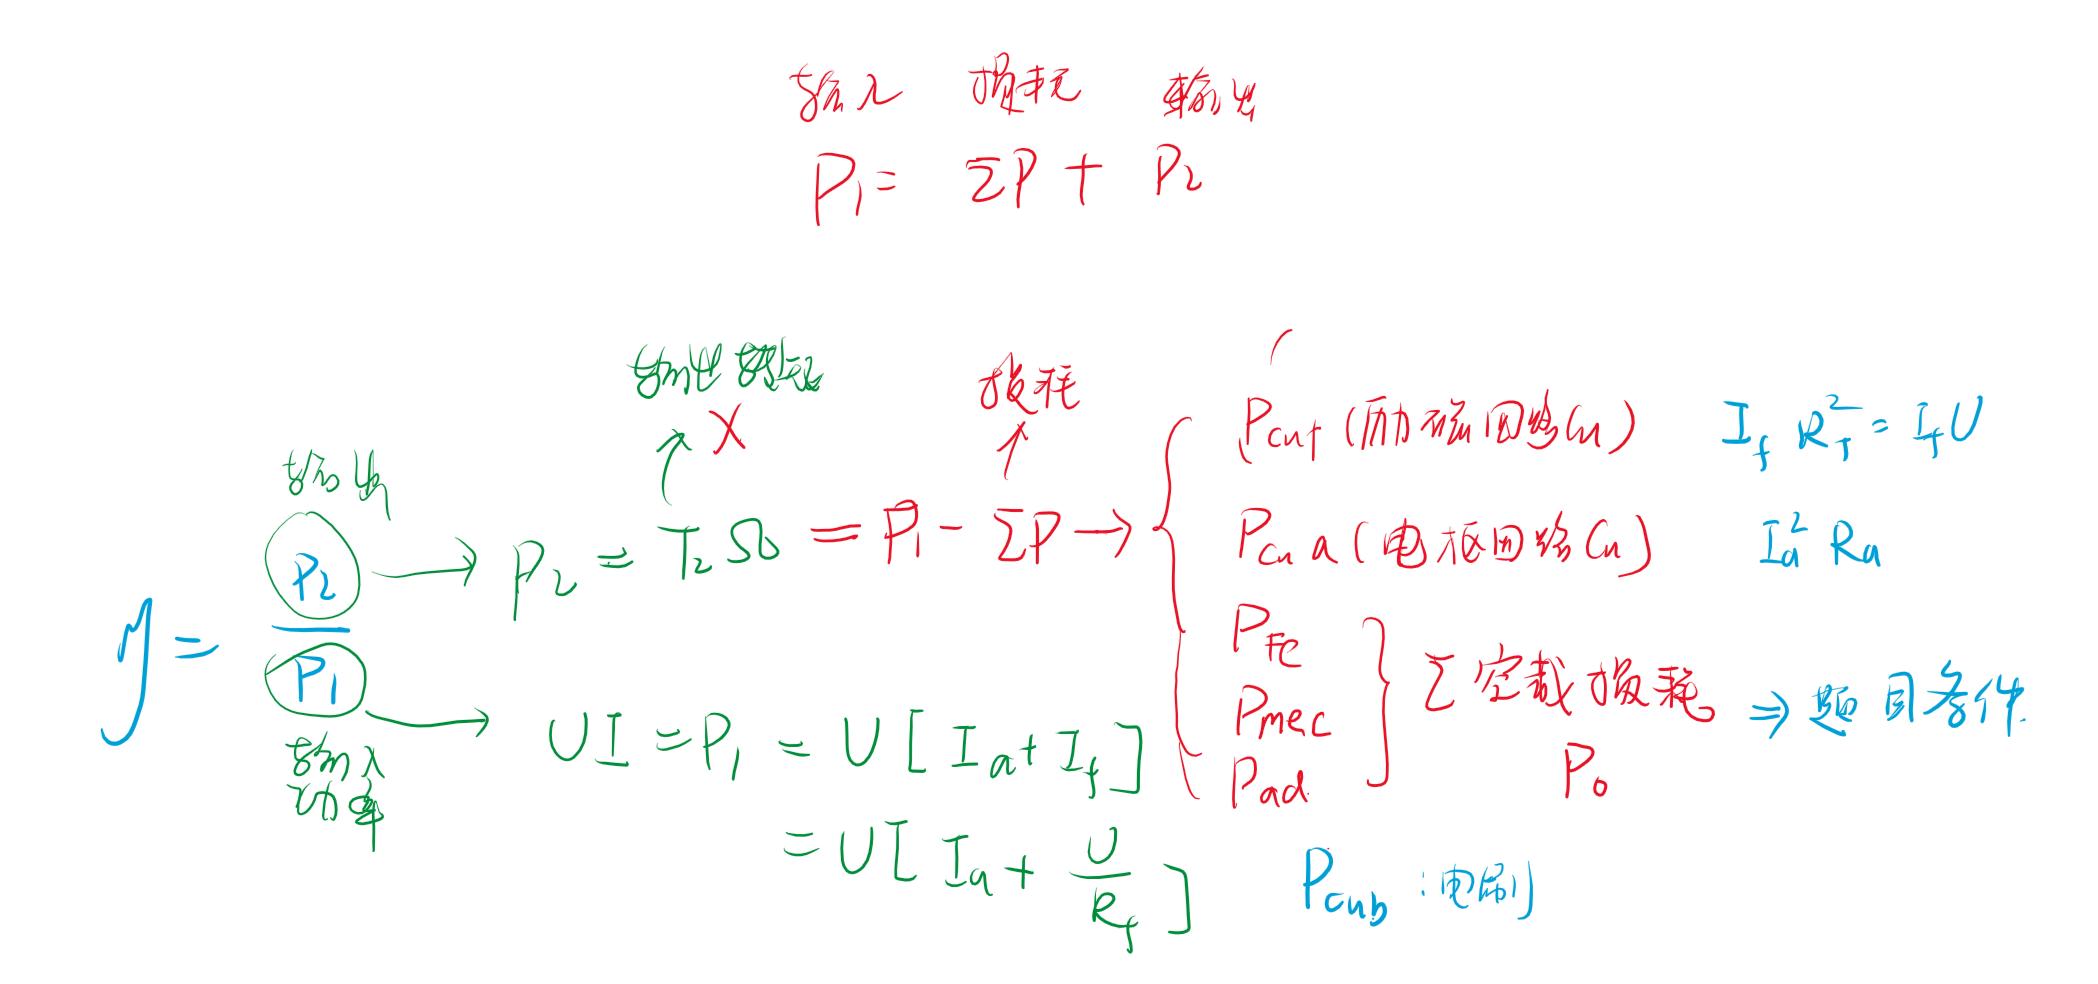 输入 损耗 输出
P₁ = ΣP + P₂
输出转矩 损耗
X
输出
η = P₂ / P₁
P₂ = T₂Ω = P₁ - ΣP →
Pcuf (励磁回路Cu) I_f R_f² = I_f U
Pcua (电枢回路Cu) I_a² R_a
P_Fe
Pmec
Pad
Σ空载损耗 ⇒ 题目条件.
P₀
输入
功率
UI = P₁ = U [ I_a + I_f ]
= U [ I_a + U / R_f ]
Pcub : 电刷